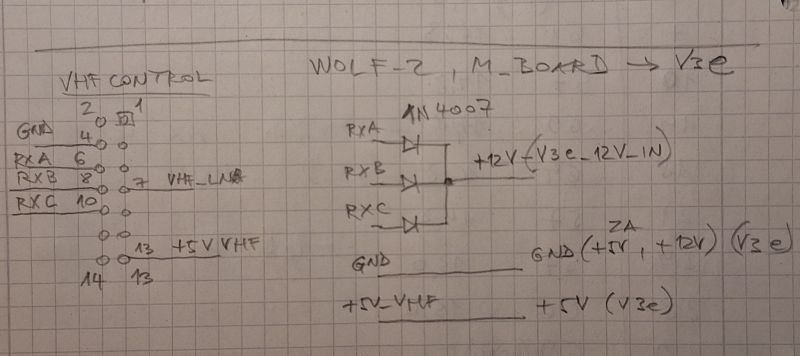 WOLF-2, M_BOARD → V3e
VHF CONTROL
2 1
1N4007
GND 4
RXA 6
RXB 8 7 VHF_LNA
RXC 10
13 +5V VHF
14 13
RXA
RXB +12V-(V3e_12V_IN)
RXC
ZA
GND GND (+5V, +12V) (V3e)
+5V_VHF +5V (V3e)